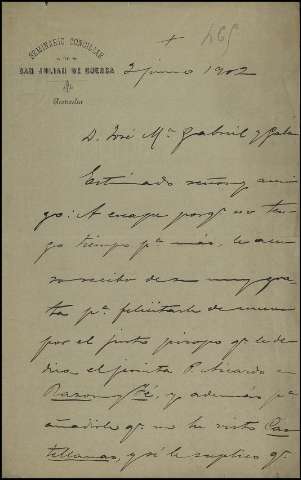 465
SEMINARIO CONCILIAR
DE
SAN JULIAN DE CUENCA
Rectorado
+
2 junio 1902
D. José Mª Gabriel y Galán
Estimado señor y ami
go: A escape porq. no ten
go tiempo pª más, le acu
so recibo de su muy gra
ta pª felicitarle de nuevo
por el justo piropo q. le de
dica el jesuita P. Aicardo en
Razon y Fé, y además pª
añadirle q. no he visto Cas
tellanas, y si le suplico q.